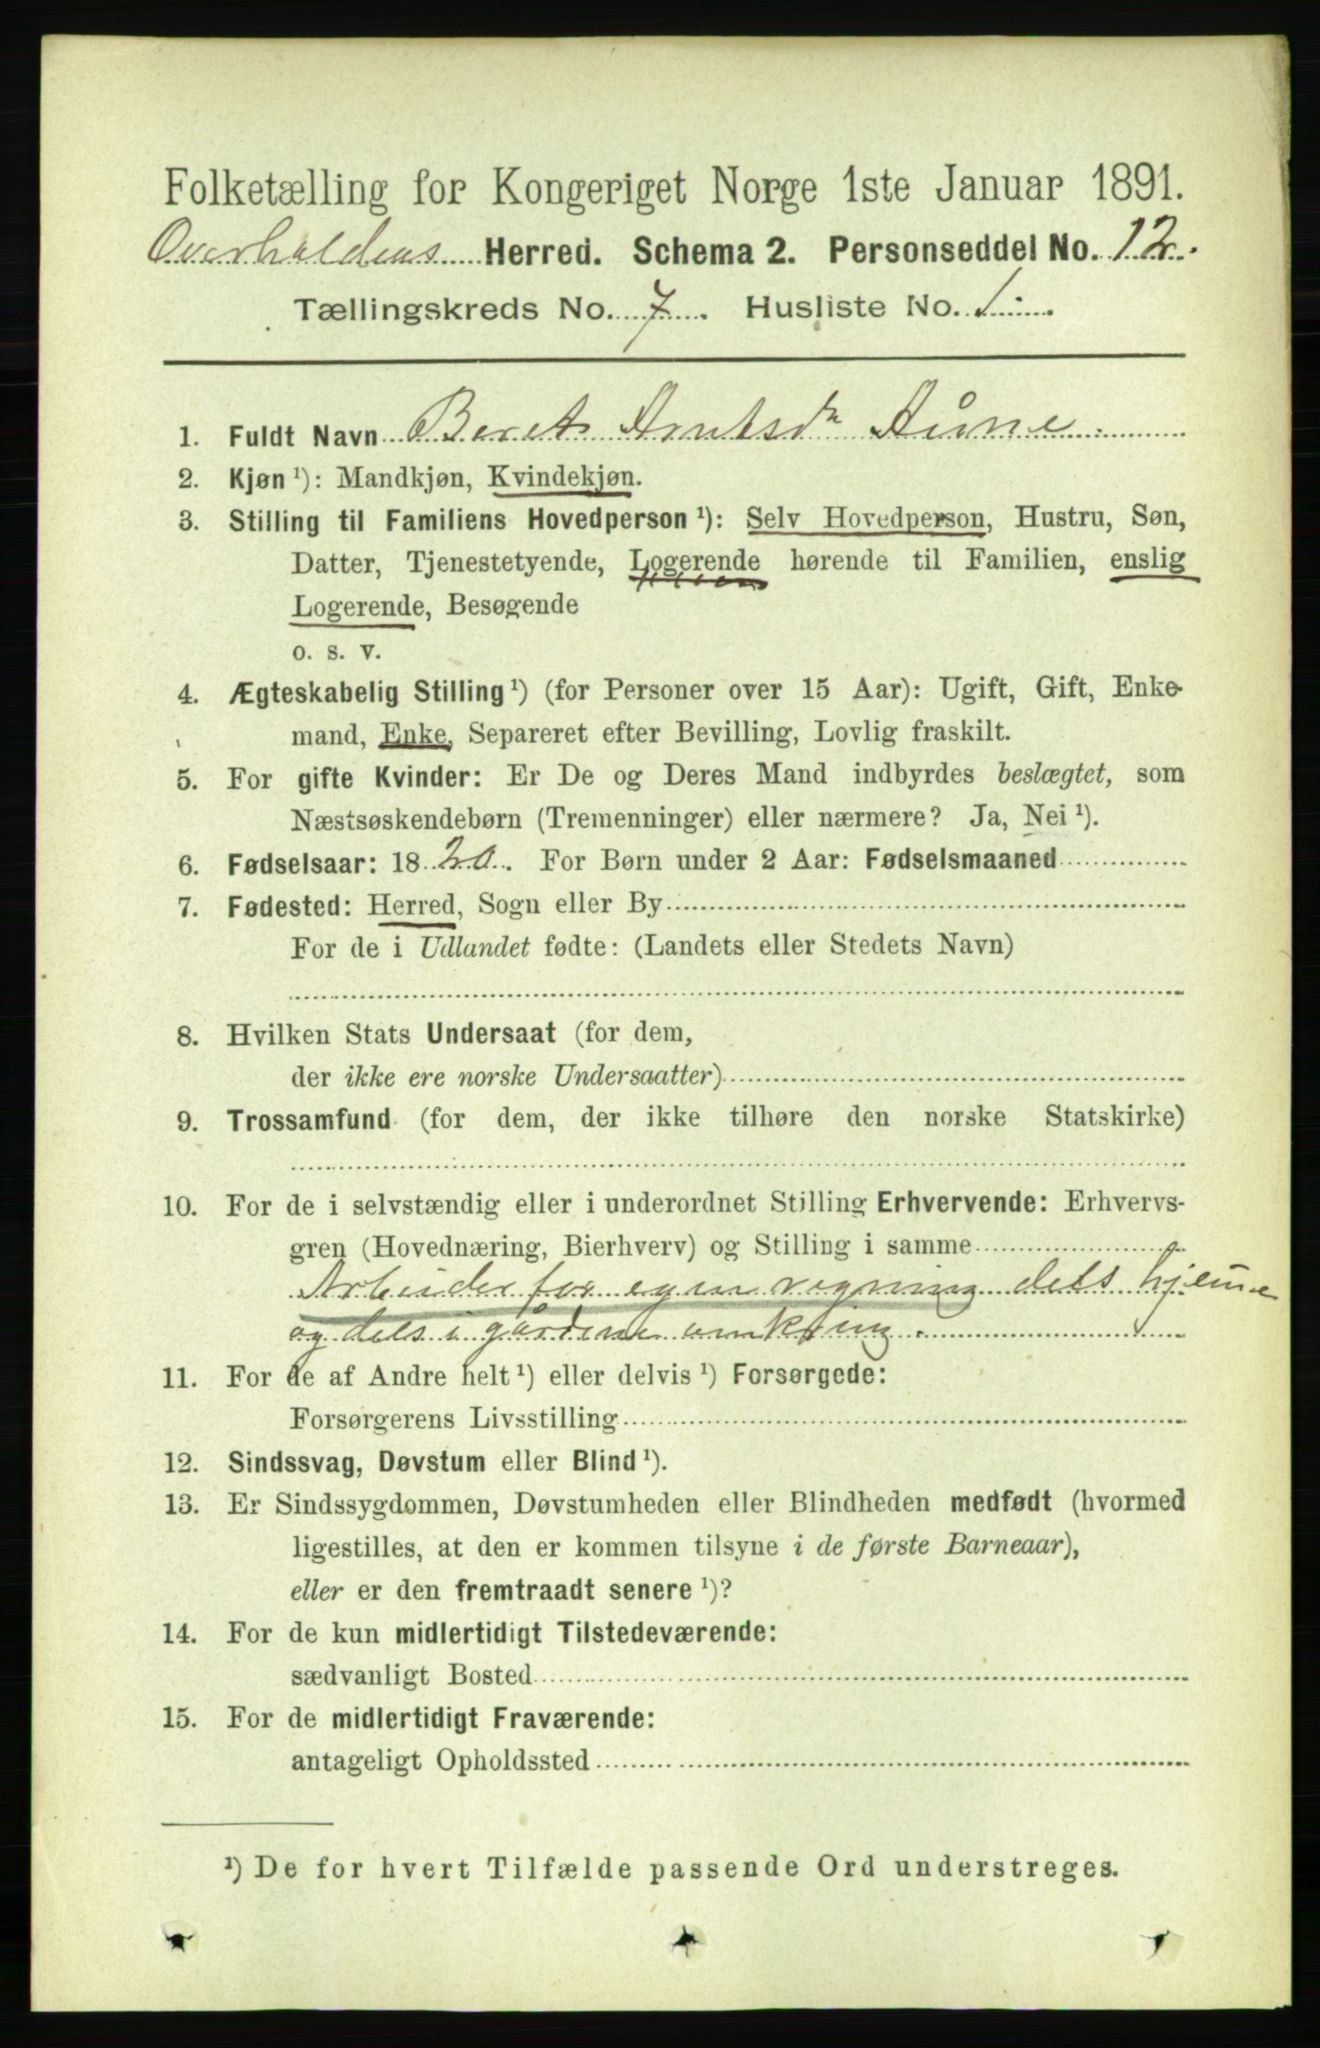 Folketælling for Kongeriget Norge 1ste Januar 1891.
Overhaldens Herred. Schema 2. Personseddel No. 12.
Tællingskreds No. 7. Husliste No. 1.
1. Fuldt Navn Beret Arntsdr Aune
2. Kjøn ¹): Mandkjøn, Kvindekjøn.
3. Stilling til Familiens Hovedperson ¹): Selv Hovedperson, Hustru, Søn,
Datter, Tjenestetyende, Logerende hørende til Familien, enslig
Logerende, Besøgende
o. s. v.
4. Ægteskabelig Stilling ¹) (for Personer over 15 Aar): Ugift, Gift, Enke-
mand, Enke, Separeret efter Bevilling, Lovlig fraskilt.
5. For gifte Kvinder: Er De og Deres Mand indbyrdes beslægtet, som
Næstsøskendebørn (Tremenninger) eller nærmere? Ja, Nei ¹).
6. Fødselsaar: 1820. For Børn under 2 Aar: Fødselsmaaned
7. Fødested: Herred, Sogn eller By
For de i Udlandet fødte: (Landets eller Stedets Navn)
8. Hvilken Stats Undersaat (for dem,
der ikke ere norske Undersaatter)
9. Trossamfund (for dem, der ikke tilhøre den norske Statskirke)
10. For de i selvstændig eller i underordnet Stilling Erhvervende: Erhvervs-
gren (Hovednæring, Bierhverv) og Stilling i samme
Arbeider for egen regning dels hjeme
og dels i gårdene omkring.
11. For de af Andre helt ¹) eller delvis ¹) Forsørgede:
Forsørgerens Livsstilling
12. Sindssvag, Døvstum eller Blind ¹).
13. Er Sindssygdommen, Døvstumheden eller Blindheden medfødt (hvormed
ligestilles, at den er kommen tilsyne i de første Barneaar),
eller er den fremtraadt senere ¹)?
14. For de kun midlertidigt Tilstedeværende:
sædvanligt Bosted
15. For de midlertidigt Fraværende:
antageligt Opholdssted
¹) De for hvert Tilfælde passende Ord understreges.